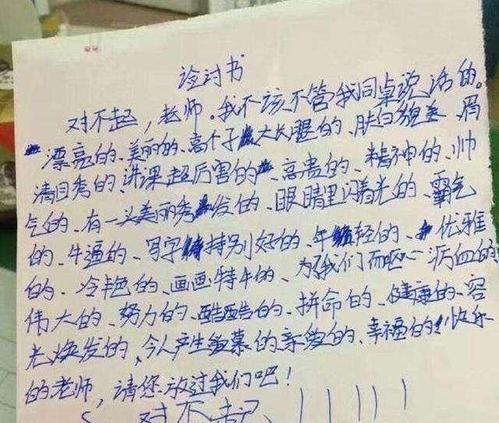 检讨书
对不起，老师。我不该不管我同桌说话的。
漂亮的、美丽的、高个子大长腿的、肤白貌美、眉
清目秀的讲课超厉害的、高贵的、精神的、帅
气的、有一头美丽秀发的、眼睛里闪着光的、霸气
的、牛逼的、写字特别好的、年轻的、优雅
的、冷艳的、画画特牛的、为了我们而呕心沥血的
伟大的、努力的、酷酷的、拼命的、健康的、容
光焕发的、令人产生羡慕的亲爱的、幸福的快乐
的老师，请您放过我们吧！
对不起、